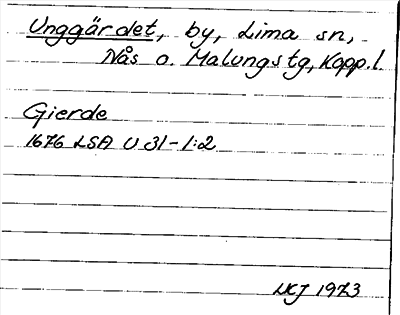 Unggärdet, by, Lima sn,
Nås o. Malungs tg, Kopp.l.
Gierde
1676 LSA U 31-1:2
NCJ 1973